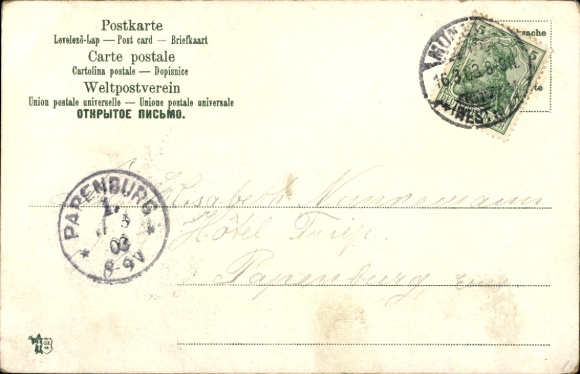 Postkarte
Levelező-Lap — Post card — Briefkaart
Carte postale
Cartolina postale — Dopisnice
Weltpostverein
Union postale universelle — Unione postale universale
ОТКРЫТОЕ ПИСЬМО.
5 5
PAPENBURG
1.
03
8-9V
Elisabeth
Hôtel
Papenburg